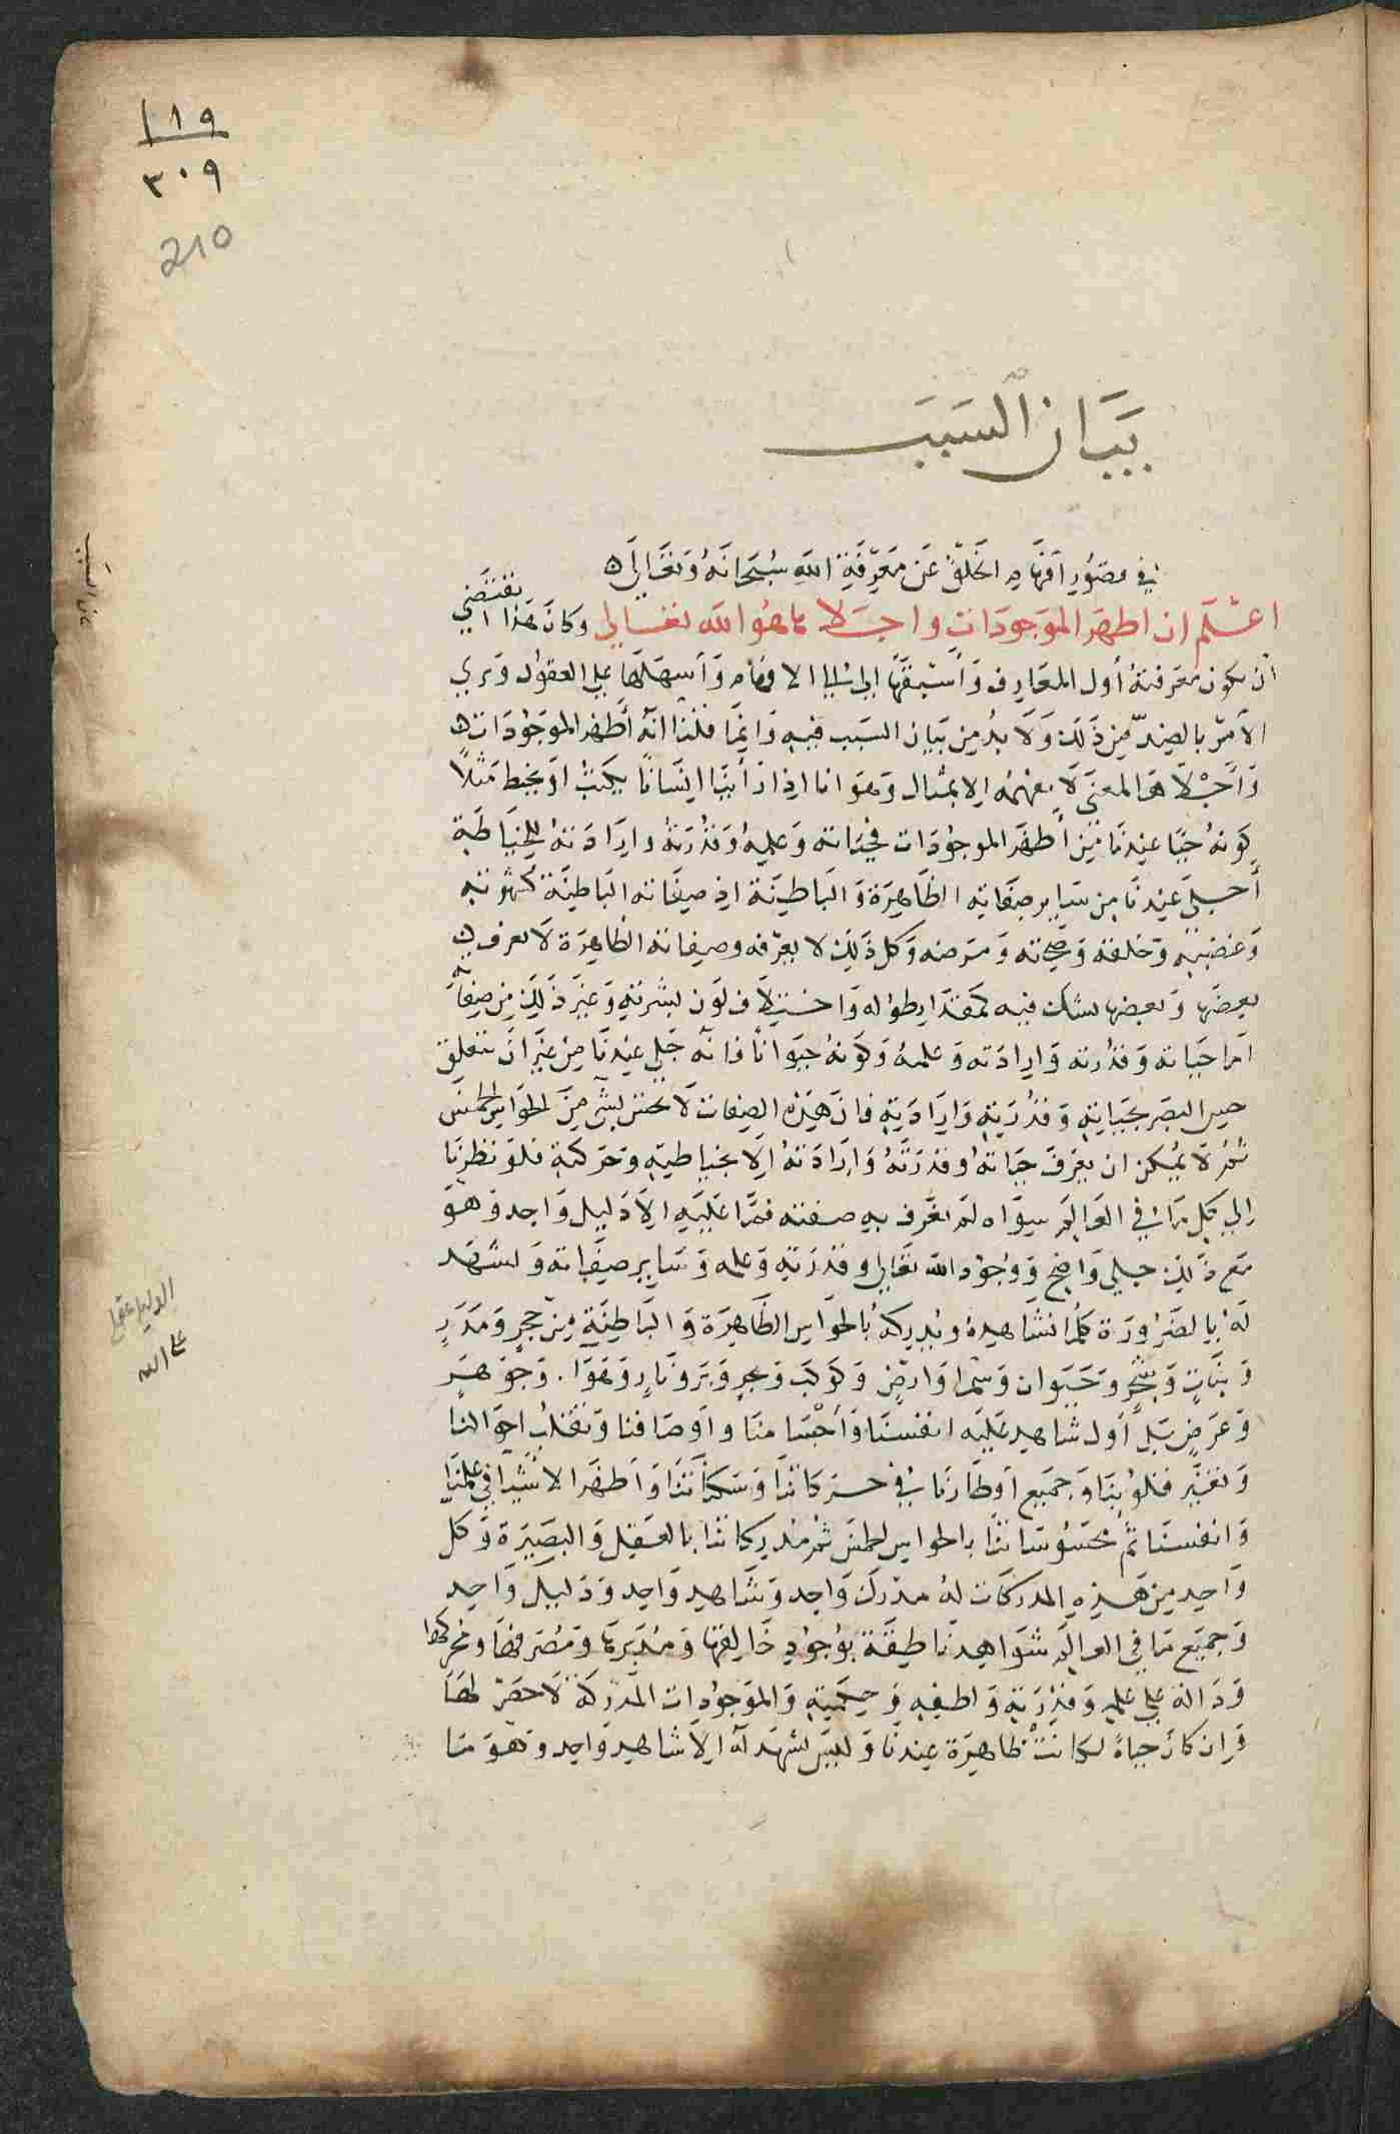 ١١٩
٣٠٩
210
بيان السبب
في قصور افهام الخلق عن معرفة الله سبحانه وتعالى ه
اعلم ان اظهر الموجودات واجلاها هو الله تعالى وكان هذا يقتضي
ان يكون معرفته أول المعارف وأسبقها إلى الافهام وأسهلها على العقول وترى
الأمر بالضد من ذلك ولا بد من بيان السبب فيه وانما قلنا انه أظهر الموجودات ه
وأجلاها لمعنى لا يفهمه الا بمثال وهو انا اذا رأينا انسانا يكتب او يخيط مثلا
كونه حيا عندنا من أظهر الموجودات فحياته وعلمه وقدرته وارادته للخياطة
أجلى عندنا من ساير صفاته الظاهرة والباطنة اذ صفاته الباطنة كشهوته
وغضبه وخلقه وصحته ومرضه وكل ذلك لا يعرفه وصفاته الظاهرة لا يعرف ه
بعضها وبعضها يشك فيه كمقدار طوله واختلاف لون بشرته وغير ذلك من صفاته
اما حياته وقدرته وارادته وعلمه وكونه حيوانا فانه جلي عندنا من غير ان يتعلق
حس البصر بحياته وقدرته وارادته فان هذه الصفات لا تحس بشي من الحواس الخمس
ثم لا يمكن ان يعرف حياته وقدرته وارادته الا بخياطته وحركته فلو نظرنا
الى كل ما في العالم سواه لم نعرف به صفته فما عليه الا دليل واحد وهو
مع ذلك جلي واضح ووجود الله تعالى وقدرته وعلمه وساير صفاته وتشهد
له بالضرورة كلما نشاهده وندركه بالحواس الظاهرة والباطنة من حجر ومدر
ونبات وشجر وحيوان وسما وارض وكوكب وبحر وبر ونار وهوا . وجوهر
وعرض بل أول شاهد عليه انفسنا وأجسامنا واوصافنا وتقلب احوالنا
وتغير قلوبنا وجميع اوطارنا في حركاتنا وسكناتنا واظهر الاشيا في علمنا
وانفسنا ثم محسوساتنا بالحواس الخمس ثم مدركاتنا بالعقل والبصيرة وكل
واحد من هذه المدركات له مدرك واحد وشاهد واحد ودليل واحد
وجميع ما في العالم شواهد ناطقة بوجود خالقها ومدبرها ومصرفها ومحركها
ودالة على علمه وقدرته ولطفه وحكمته والموجودات المدركة لا حصر لها
فان كان حياة لكانت ظاهرة عندنا وليس يشهد له الا شاهد واحد وهو ما
الدليل عقلي
على الله